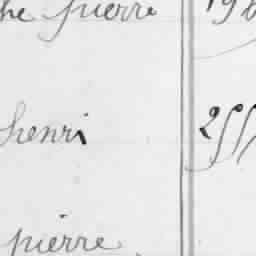 he pierre 196
henri 255
pierre